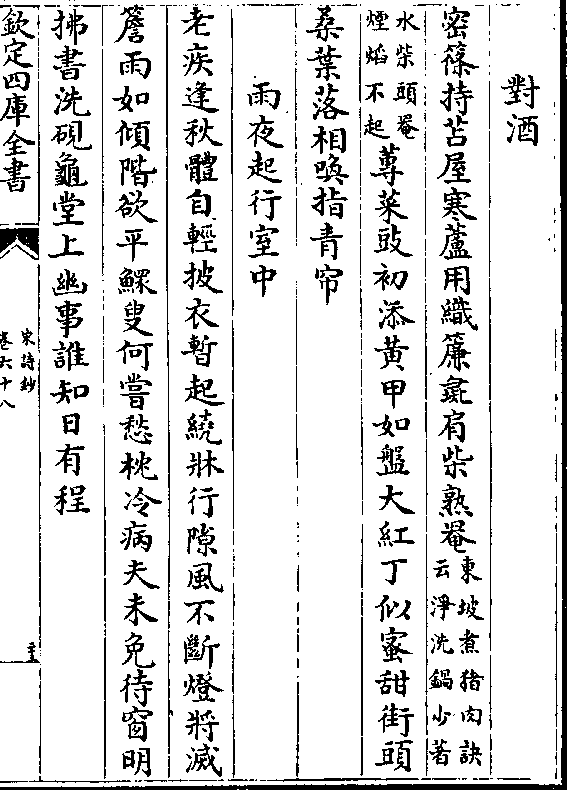 對酒
密篠持苫屋寒蘆用織簾彘肩柴熟罨東坡煮猪肉訣
云淨洗鍋少著
水柴頭罨
煙熖不起蓴菜豉初添黄甲如盤大紅丁似蜜甜街頭
桑葉落相喚指青帘
雨夜起行室中
老疾逢秋體自輕披衣暫起繞牀行隙風不斷燈將滅
簷雨如傾階欲平鰥叟何嘗愁枕冷病夫未免待窗明
拂書洗硯龜堂上幽事誰知日有程
欽定四庫全書
宋詩鈔
卷六十八